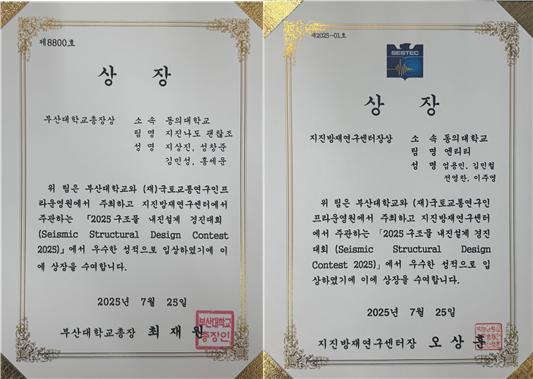 제8800호
상 장
부산대학교총장상 소 속 동의대학교
팀 명 지진나도 괜찮조
성 명 지상진, 성창준
김민성, 홍세운
위 팀은 부산대학교와 (재)국토교통연구인프
라운영원에서 주최하고 지진방재연구센터에서
주관하는 「2025 구조물 내진설계 경진대회
(Seismic Structural Design Contest
2025)」에서 우수한 성적으로 입상하였기에 이
에 상장을 수여합니다.
2025년 7월 25일
부산대학교총장 최재원
부산대학교
총장인
제2025-01호
SESTEC
상 장
지진방재연구센터장상 소 속 동의대학교
팀 명 엔티티
성 명 엄용민, 김민철
전영찬, 이주영
위 팀은 부산대학교와 (재)국토교통연구인
프라운영원에서 주최하고 지진방재연구센터
에서 주관하는 「2025 구조물 내진설계 경진
대회 (Seismic Structural Design
Contest 2025)」에서 우수한 성적으로 입
상하였기에 이에 상장을 수여합니다.
2025년 7월 25일
지진방재연구센터장 오상훈